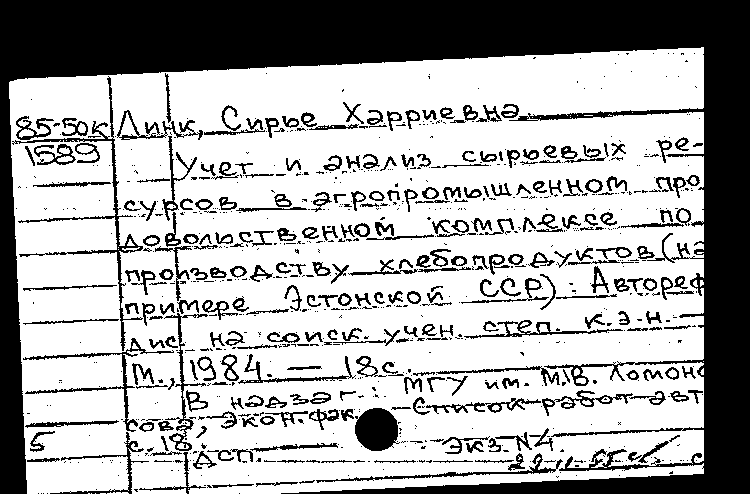 85-50к Линк, Сирье Харриевна
1589
Учет и анализ сырьевых ре-
сурсов в агропромышленном про
довольственном комплексе по
производству хлебопродуктов (на
примере Эстонской ССР): Автореф
дис. на соиск. учен. степ. к.э.н. —
М., 1984. — 18с.
В надзаг.: МГУ им. М.В. Ломоно
сова, экон. фак. Список работ авт
5 с. 18.
Дсп. Экз. N4.